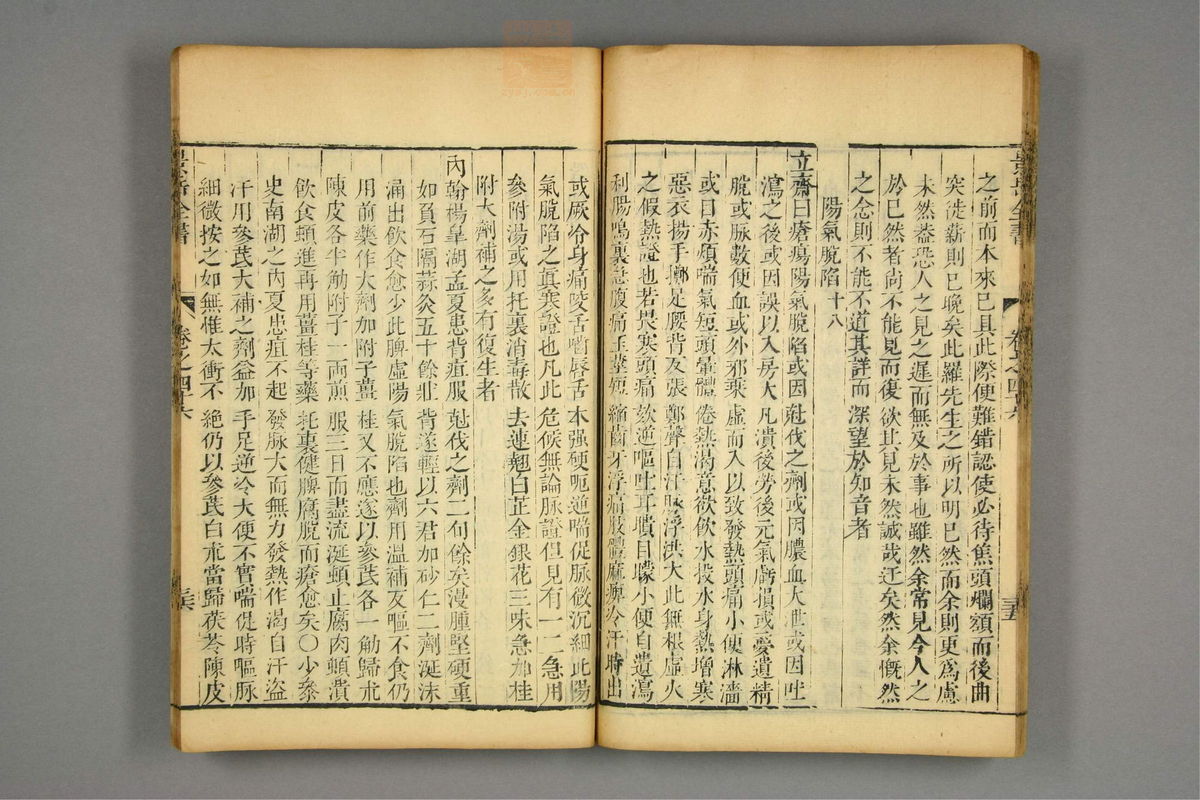 之前而本來已具此際便難錯認使必待焦頭爛額而後曲
突徙薪則已晚矣此羅先生之所以明已然而余則更為慮
未然蓋恐人之見之遲而無及於事也雖然余常見今人之
於已然者尚不能見而復欲其見未然誠哉迂矣然余慨然
之念則不能不道其詳而深望於知音者
陽氣脫陷十八
立齋曰瘡瘍陽氣脫陷或因尅伐之劑或因膿血大泄或因吐
瀉之後或因誤以入房大凡潰後勞後元氣虧損或憂遺精
脫或脉數便血或外邪乘虛而入以致發熱頭痛小便淋濇
或目赤煩喘氣短頭暈體倦熱渴意欲飲水投水身熱增寒
惡衣揚手擲足腰背反張鄭聲自汗脉浮洪大此無根虛火
之假熱證也若畏寒頭痛欬逆嘔吐耳聵目矇小便自遺瀉
利腸鳴裏急腹痛玉莖短縮齒牙浮痛肢體麻痺冷汗時出
或厥冷身痛咬舌嚙唇舌本强硬呃逆喘促脉微沉細此陽
氣脫陷之真寒證也凡此危候無論脉證但見有一二急用
參附湯或用托裏消毒散去連翹白芷金銀花三味急加桂
附大劑補之多有復生者
內翰楊皋湖孟夏患背疽服尅伐之劑二旬餘矣漫腫堅硬重
如負石隔蒜灸五十餘壯背遂輕以六君加砂仁二劑涎沫
涌出飲食愈少此脾虛陽氣脫陷也劑用溫補反嘔不食仍
用前藥作大劑加附子薑桂又不應遂以參芪各一觔歸朮
陳皮各半觔附子一兩煎服三日而盡流涎頓止腐肉頓潰
飲食頓進再用薑桂等藥托裏健脾腐脫而瘡愈矣〇少參
史南湖之內夏患疽不起發脉大而無力發熱作渴自汗盜
汗用參芪大補之劑益加手足逆冷大便不實喘促時嘔脉
細微按之如無惟太衝不絕仍以參芪白朮當歸茯苓陳皮
景岳全書
卷之四六
三五
景岳全書
卷之四六
三六
zysj.com.cn